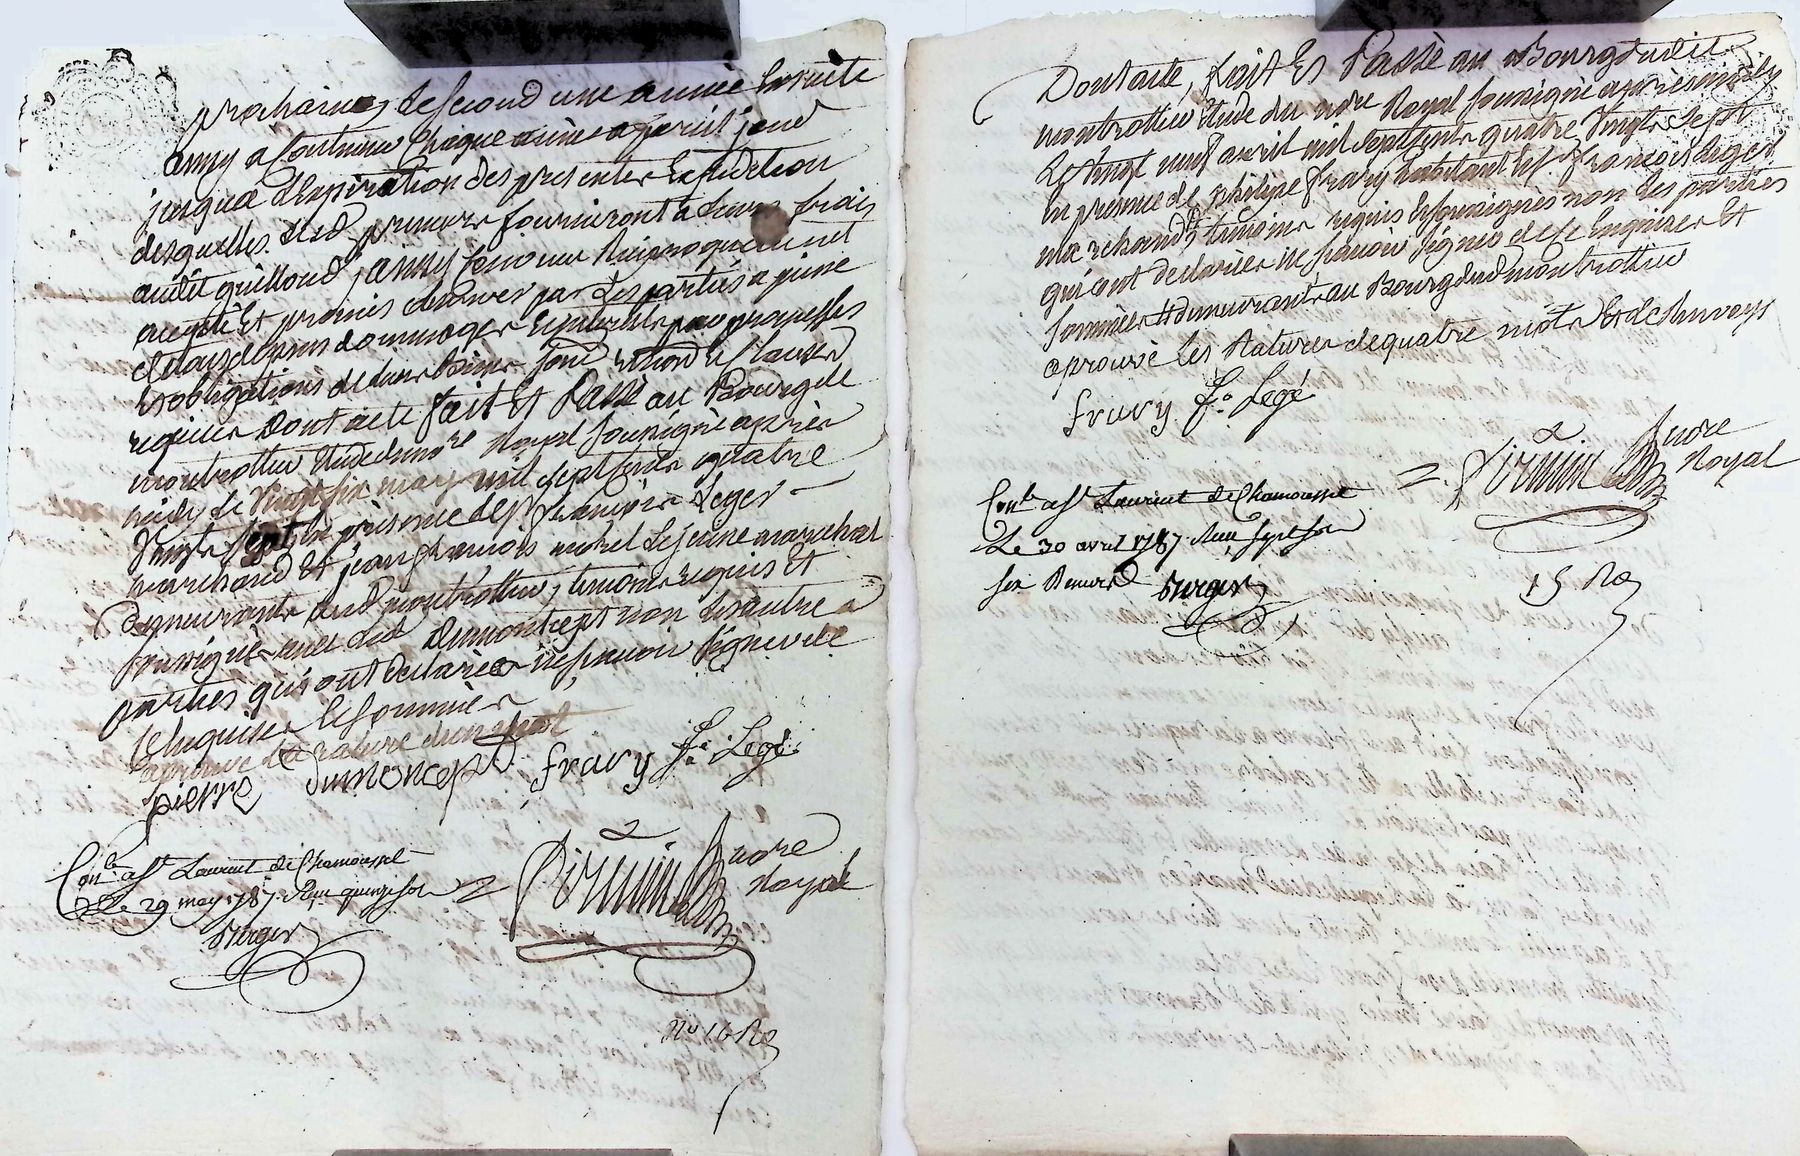 prochaines le second une année ensuite
ainsy a continuer chaque année a pareil jour
jusqua l'expiration des presentes expedition
desquelles lesd preneurs fourniront a leurs frais
audit guilloud, ainsy convenu reciproquement
accepté et promis observer par les parties a peine
de tous depens dommages interests par promesses
et obligations de leurs biens renon et clauses
requises Dont acte fait et Passé au Bourg de
montrottier Etude du nore Royal soussigné après
midi le vingt six may mil sept cents quatre
vingts sept en présence de sr francois Leger
marchand et jean francois michel Lejeune marechal
demeurants aud montrottier, temoins requis et
soussignés avec led Dumoncept non les autres
parties qui ont declarées ne sçavoir signer de
ce enquises et sommées
aprouvé la rature d'un mot
pierre Dumoncept fravy f. Legé
Con.le asr Laurent de Chamousset
Le 29 may 1787 Reçu quinze sols
Berger
2 nore
Royal
No 16 Ro
Dont acte, fait Et Passé au Bourg dudit
montrottier Etude du nore Royal soussigné après midy
Le vingt neuf avril mil sept cents quatre vingts sept
en presence de philipe fravy habitant et sr francois Leger
marchand, temoins requis et soussignés non les parties
qui ont declarées ne scavoir signer de ce Enquises Et
sommées demeurants au Bourg dud montrottier
aprouvé les Ratures de quatre mots et de renvoys
fravy f. Legé
2 nore
Royal
Con.le asr Laurent de Chamousset
Le 30 avril 1787 Reçu sept sols
six deniers Berger
15 Ro